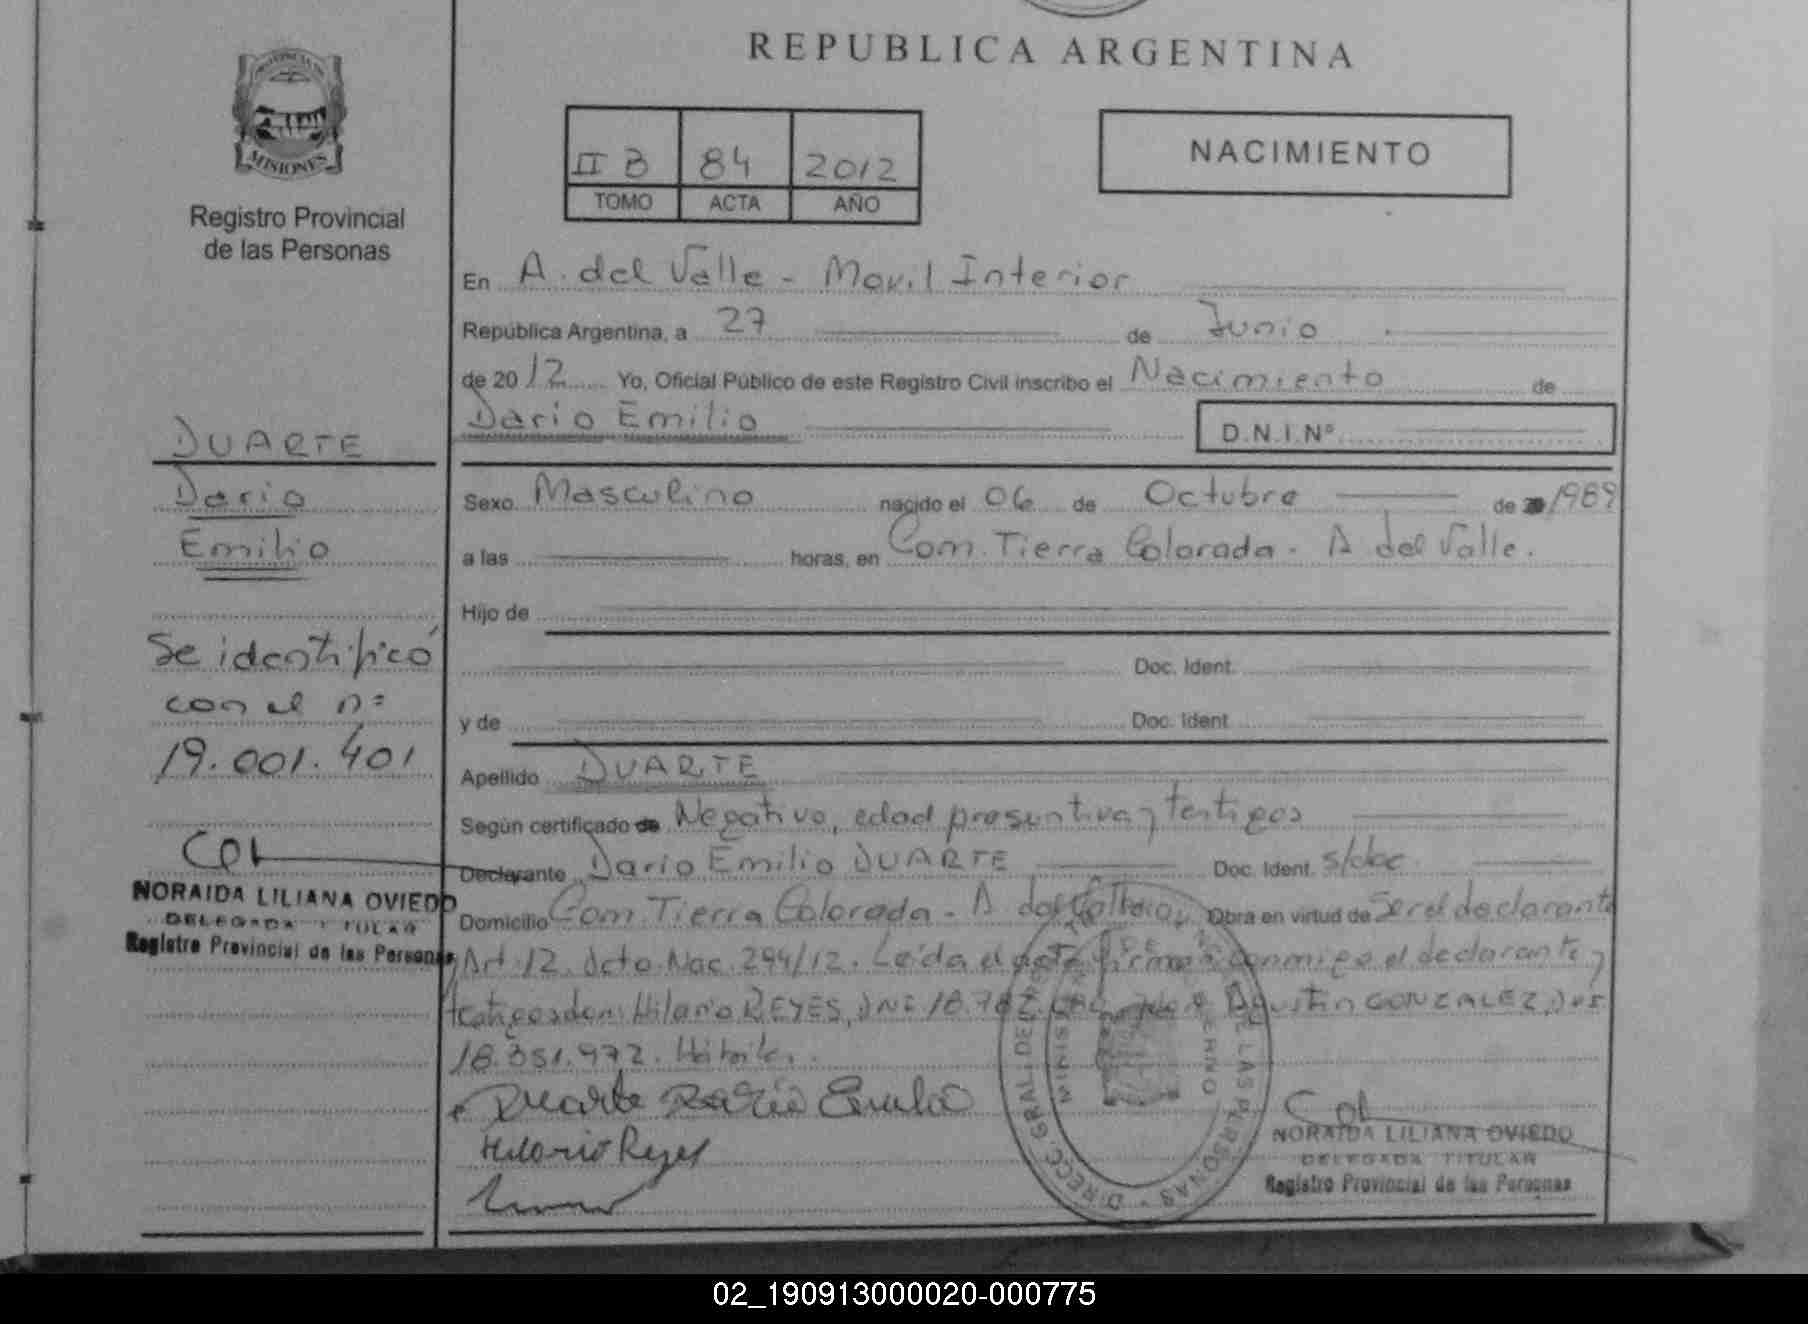 REPUBLICA ARGENTINA
MISIONES
Registro Provincial
de las Personas
II B 84 2012
TOMO ACTA AÑO
NACIMIENTO
En A. del Valle - Movil Interior
República Argentina, a 27 de Junio
de 2012 Yo, Oficial Público de este Registro Civil inscribo el Nacimiento de
Dario Emilio D.N.I.Nº
DUARTE
Dario
Emilio
Se identificó
con el nº
19.001.401
NORAIDA LILIANA OVIEDO
DELEGADA TITULAR
Registro Provincial de las Personas
Sexo Masculino nacido el 06 de Octubre de 1989
a las horas, en Com. Tierra Colorada - A del Valle.
Hijo de
Doc. Ident.
y de Doc. Ident
Apellido DUARTE
Según certificado de Negativo, edad presuntiva y testigos
Declarante Dario Emilio DUARTE Doc. Ident. s/doc
Domicilio Com. Tierra Colorada - A Obra en virtud de Ser el declarante
Art. 12. Dcto. Nac. 294/12. Leída el acta firman conmigo el declarante y
testigos don: Hilario REYES, DNI 18.782. Agustín GONZALEZ, DNI
18.351.972. Hábiles.
Duarte Dario Emilio
Hilario Reyes
NORAIDA LILIANA OVIEDO
DELEGADA TITULAR
Registro Provincial de las Personas
02_190913000020-000775